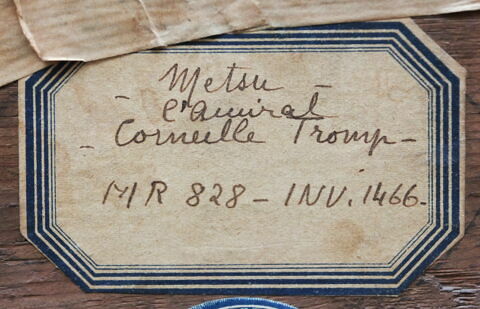 - Metsu -
l'amiral
- Corneille Tromp -
MR 828 - INV. 1466.